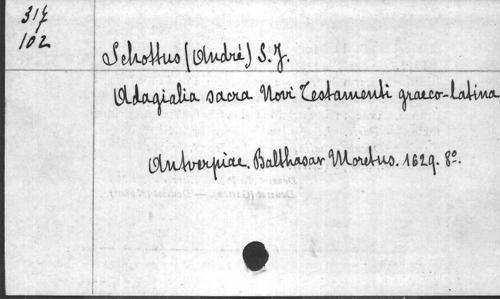 317
102
Schottus (André) S. J.
Adagialia sacra Novi Testamenti graeco-latina
Antverpiae. Balthasar Moretus. 1629. 8°.